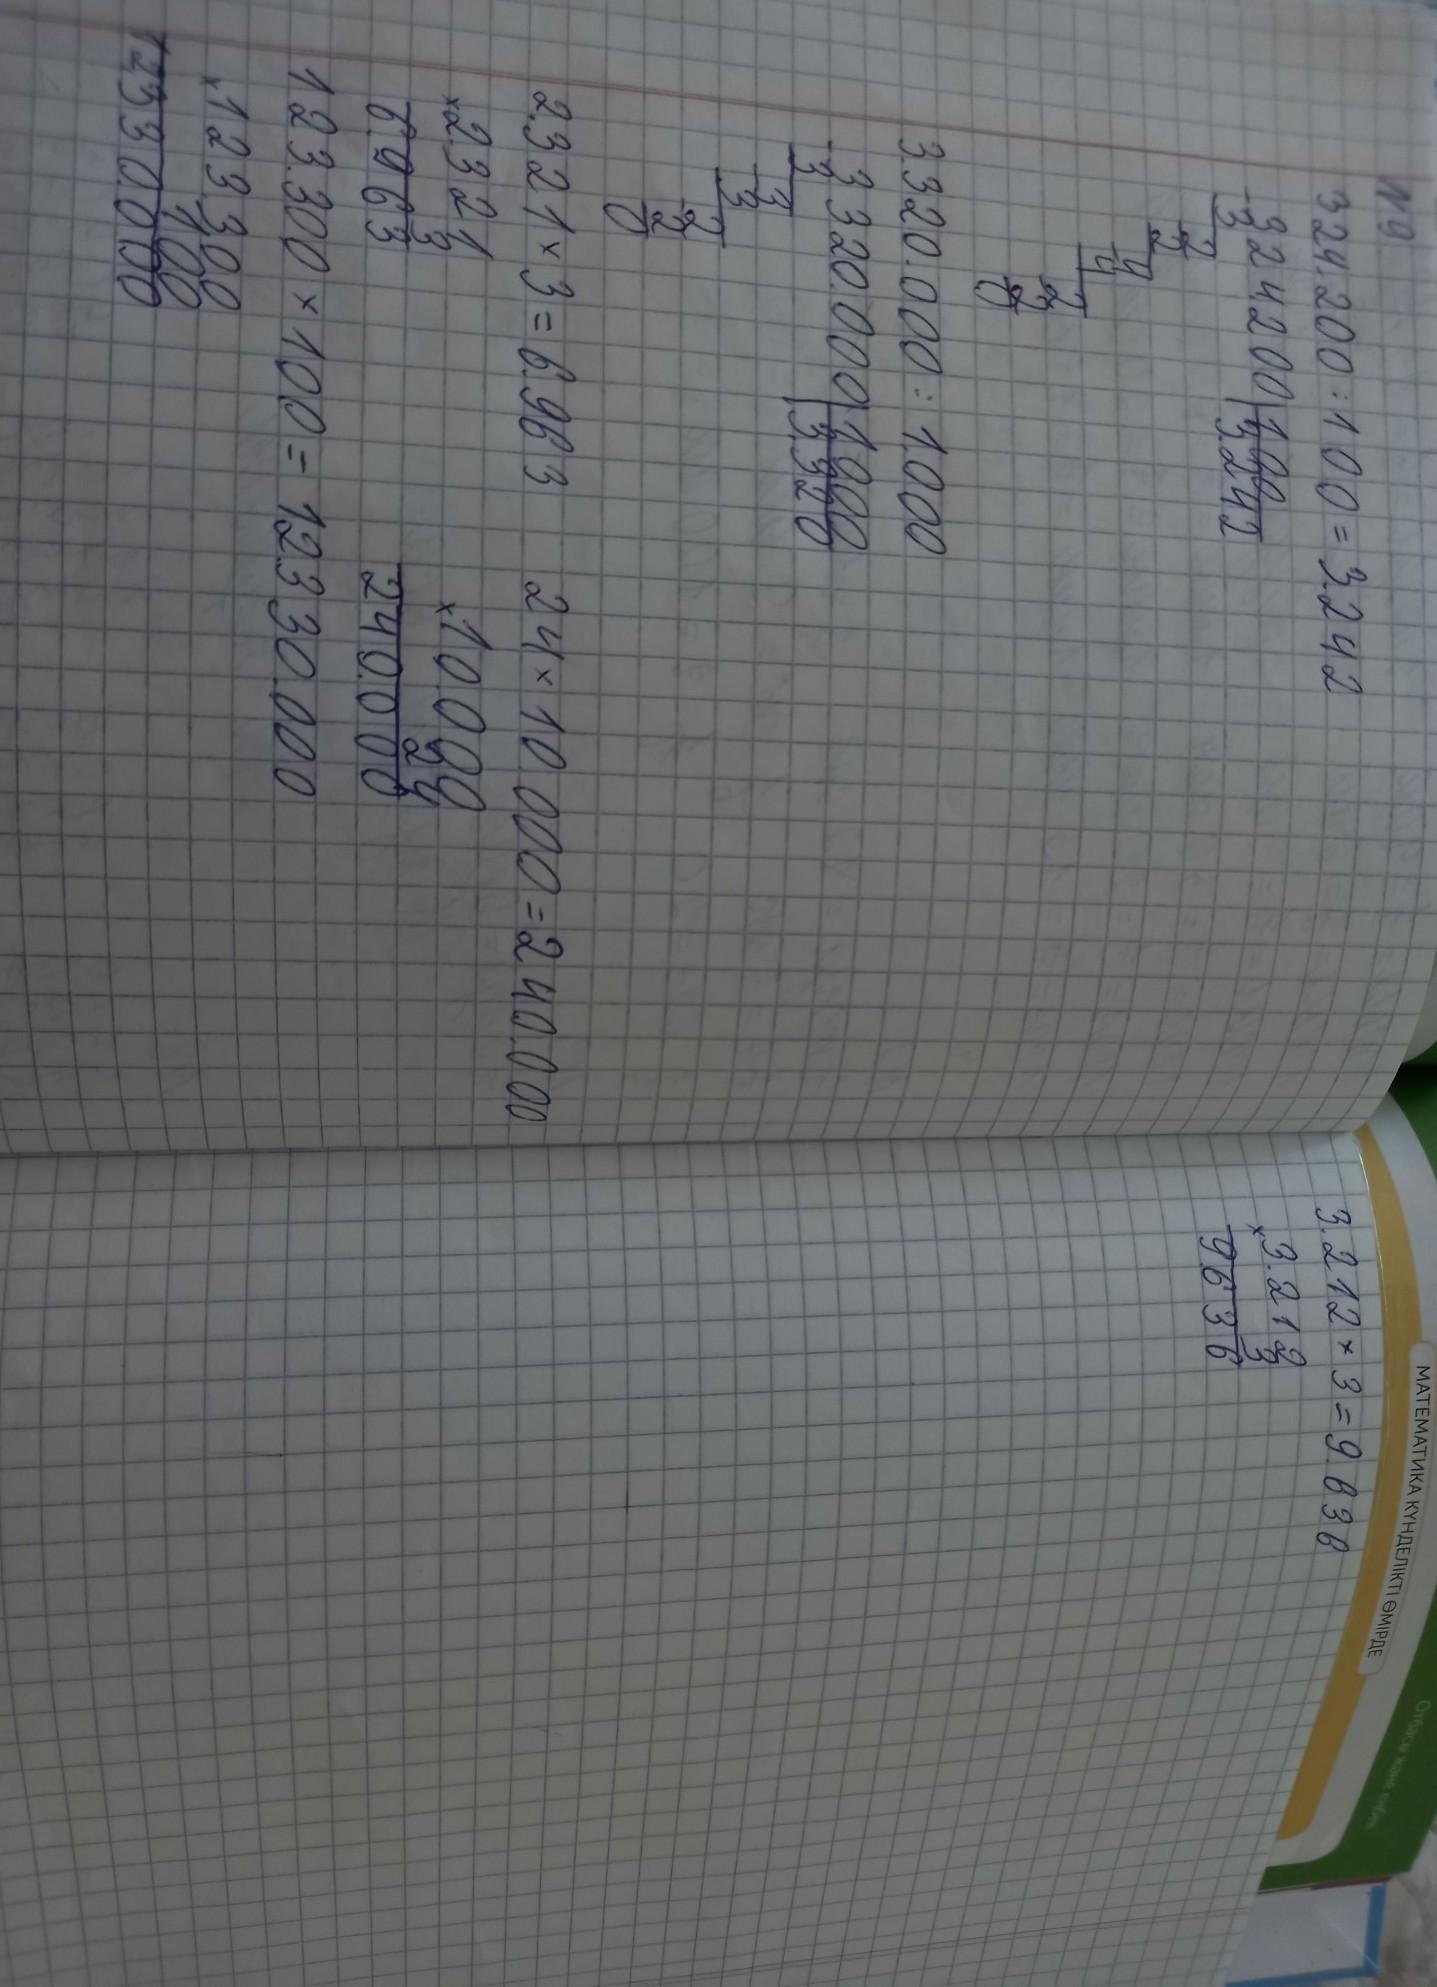 №9
324.200 : 100 = 3.242
-324200|100
3 3.242
-2
2
-4
4
-2
2
0
3.320.000 : 1.000
-3320.000|1000
3 3.320
-3
3
-2
2
0
2.321 × 3 = 6.963
24 × 10 000 = 240.000
×2.321
3
6.963
×10.000
24
240.000
123.300 × 100 = 12.330.000
×123.300
100
12330.000
3.212 × 3 = 9.636
×3.212
3
9.636
МАТЕМАТИКА КҮНДЕЛІКТІ ӨМІРДЕ